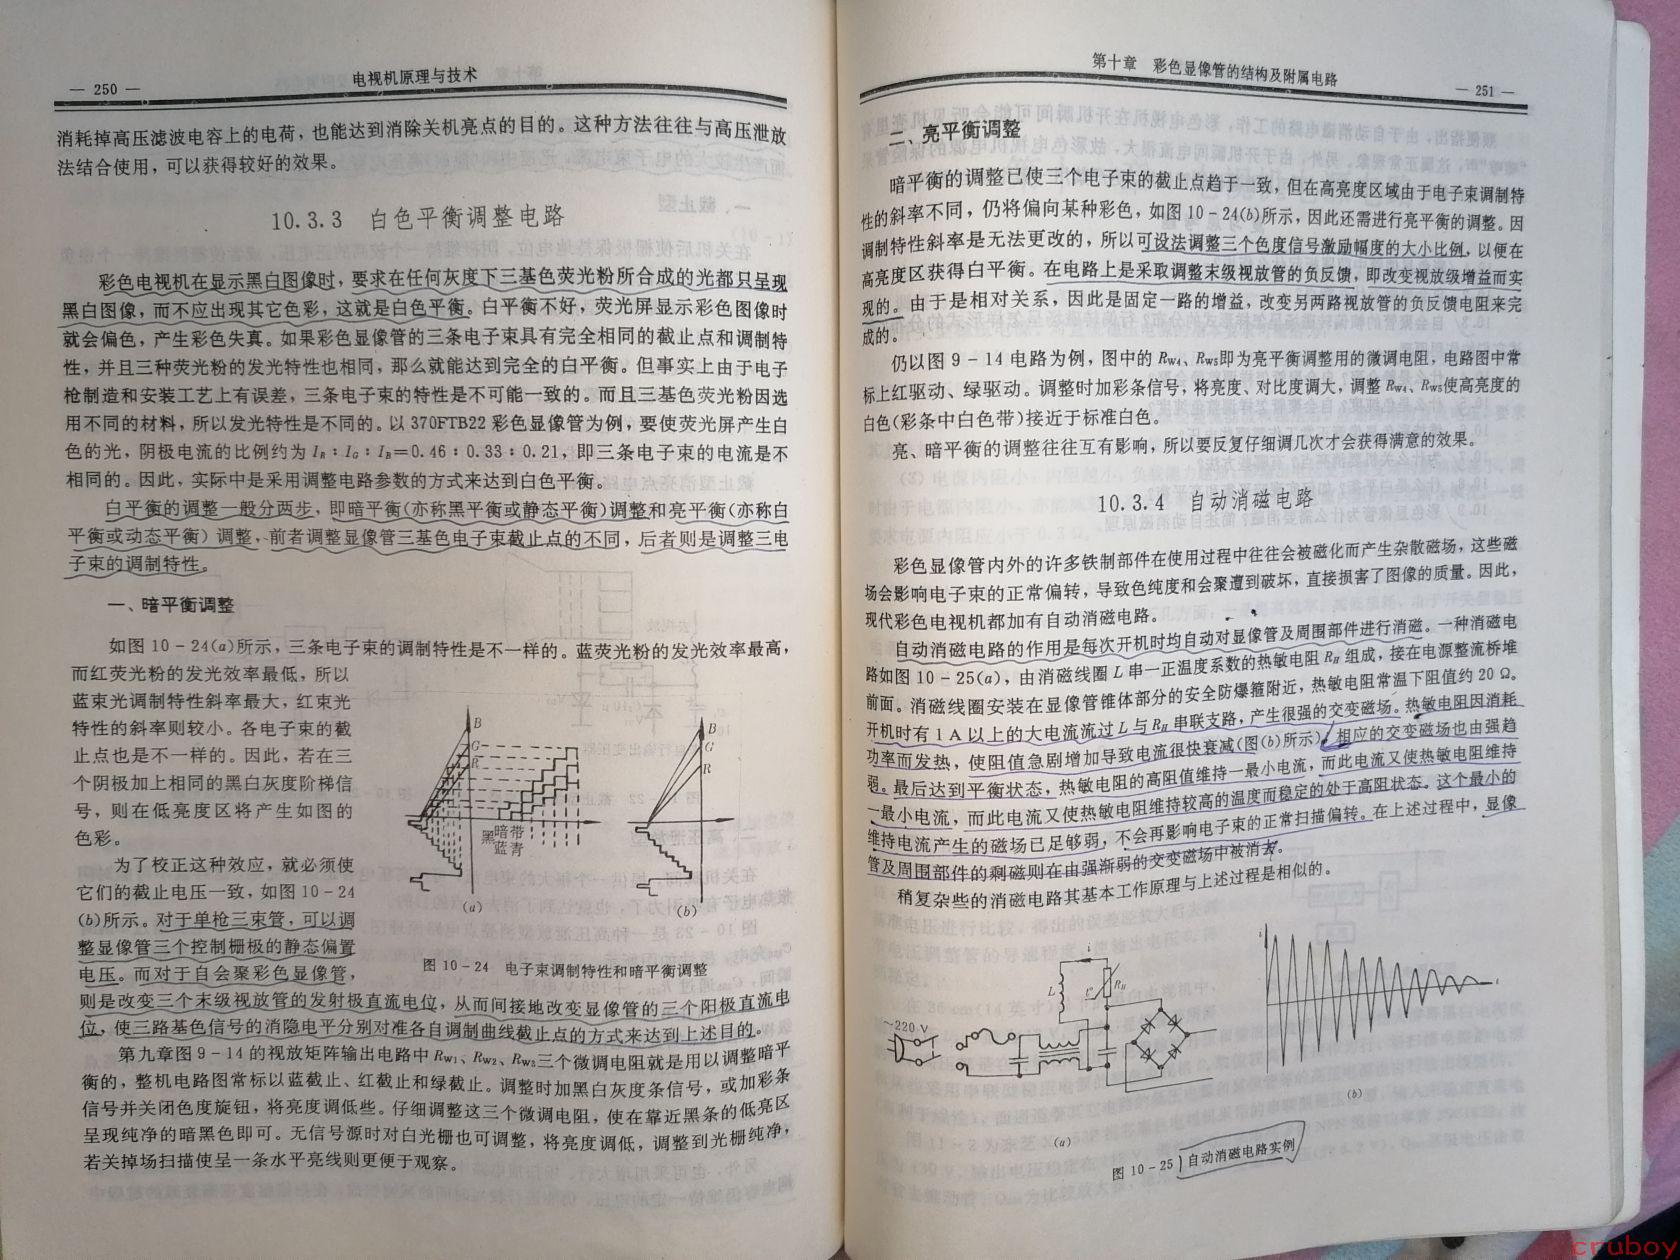 — 250 —
电视机原理与技术
消耗掉高压滤波电容上的电荷，也能达到消除关机亮点的目的。这种方法往往与高压泄放
法结合使用，可以获得较好的效果。
10.3.3 白色平衡调整电路
彩色电视机在显示黑白图像时，要求在任何灰度下三基色荧光粉所合成的光都只呈现
黑白图像，而不应出现其它色彩，这就是白色平衡。白平衡不好，荧光屏显示彩色图像时
就会偏色，产生彩色失真。如果彩色显像管的三条电子束具有完全相同的截止点和调制特
性，并且三种荧光粉的发光特性也相同，那么就能达到完全的白平衡。但事实上由于电子
枪制造和安装工艺上有误差，三条电子束的特性是不可能一致的。而且三基色荧光粉因选
用不同的材料，所以发光特性是不同的。以 370FTB22 彩色显像管为例，要使荧光屏产生白
色的光，阴极电流的比例约为 IR：IG：IB＝0.46：0.33：0.21，即三条电子束的电流是不
相同的。因此，实际中是采用调整电路参数的方式来达到白色平衡。
白平衡的调整一般分两步，即暗平衡(亦称黑平衡或静态平衡)调整和亮平衡(亦称白
平衡或动态平衡)调整，前者调整显像管三基色电子束截止点的不同，后者则是调整三电
子束的调制特性。
一、暗平衡调整
如图 10－24(a)所示，三条电子束的调制特性是不一样的。蓝荧光粉的发光效率最高，
而红荧光粉的发光效率最低，所以
蓝束光调制特性斜率最大，红束光
特性的斜率则较小。各电子束的截
止点也是不一样的。因此，若在三
个阴极加上相同的黑白灰度阶梯信
号，则在低亮度区将产生如图的
色彩。
为了校正这种效应，就必须使
它们的截止电压一致，如图 10－24
(b)所示。对于单枪三束管，可以调
整显像管三个控制栅极的静态偏置
电压。而对于自会聚彩色显像管，
B
G
R
暗带
黑
蓝青
(a)
B
G
R
(b)
图 10－24 电子束调制特性和暗平衡调整
则是改变三个末级视放管的发射极直流电位，从而间接地改变显像管的三个阳极直流电
位，使三路基色信号的消隐电平分别对准各自调制曲线截止点的方式来达到上述目的。
第九章图 9－14 的视放矩阵输出电路中 RW1、RW2、RW3三个微调电阻就是用以调整暗平
衡的，整机电路图常标以蓝截止、红截止和绿截止。调整时加黑白灰度条信号，或加彩条
信号并关闭色度旋钮，将亮度调低些。仔细调整这三个微调电阻，使在靠近黑条的低亮区
呈现纯净的暗黑色即可。无信号源时对白光栅也可调整，将亮度调低，调整到光栅纯净，
若关掉场扫描使呈一条水平亮线则更便于观察。
第十章 彩色显像管的结构及附属电路
— 251 —
二、亮平衡调整
暗平衡的调整已使三个电子束的截止点趋于一致，但在高亮度区域由于电子束调制特
性的斜率不同，仍将偏向某种彩色，如图 10－24(b)所示，因此还需进行亮平衡的调整。因
调制特性斜率是无法更改的，所以可设法调整三个色度信号激励幅度的大小比例，以便在
高亮度区获得白平衡。在电路上是采取调整末级视放管的负反馈，即改变视放级增益而实
现的。由于是相对关系，因此是固定一路的增益，改变另两路视放管的负反馈电阻来完
成的。
仍以图 9－14 电路为例，图中的 RW4、RW5即为亮平衡调整用的微调电阻，电路图中常
标上红驱动、绿驱动。调整时加彩条信号，将亮度、对比度调大，调整 RW4、RW5使高亮度的
白色(彩条中白色带)接近于标准白色。
亮、暗平衡的调整往往互有影响，所以要反复仔细调几次才会获得满意的效果。
10.3.4 自动消磁电路
彩色显像管内外的许多铁制部件在使用过程中往往会被磁化而产生杂散磁场，这些磁
场会影响电子束的正常偏转，导致色纯度和会聚遭到破坏，直接损害了图像的质量。因此，
现代彩色电视机都加有自动消磁电路。
自动消磁电路的作用是每次开机时均自动对显像管及周围部件进行消磁。一种消磁电
路如图 10－25(a)，由消磁线圈 L 串一正温度系数的热敏电阻 RH 组成，接在电源整流桥堆
前面。消磁线圈安装在显像管锥体部分的安全防爆箍附近，热敏电阻常温下阻值约 20 Ω。
开机时有 1 A 以上的大电流流过 L 与 RH 串联支路，产生很强的交变磁场。热敏电阻因消耗
功率而发热，使阻值急剧增加导致电流很快衰减(图(b)所示)，相应的交变磁场也由强趋
弱。最后达到平衡状态，热敏电阻的高阻值维持一最小电流，而此电流又使热敏电阻维持
一最小电流，而此电流又使热敏电阻维持较高的温度而稳定的处于高阻状态。这个最小的
维持电流产生的磁场已足够弱，不会再影响电子束的正常扫描偏转。在上述过程中，显像
管及周围部件的剩磁则在由强渐弱的交变磁场中被消去。
稍复杂些的消磁电路其基本工作原理与上述过程是相似的。
i
L
t°
RH
~220 V
(a)
i
t
(b)
图 10－25 自动消磁电路实例
cruboy